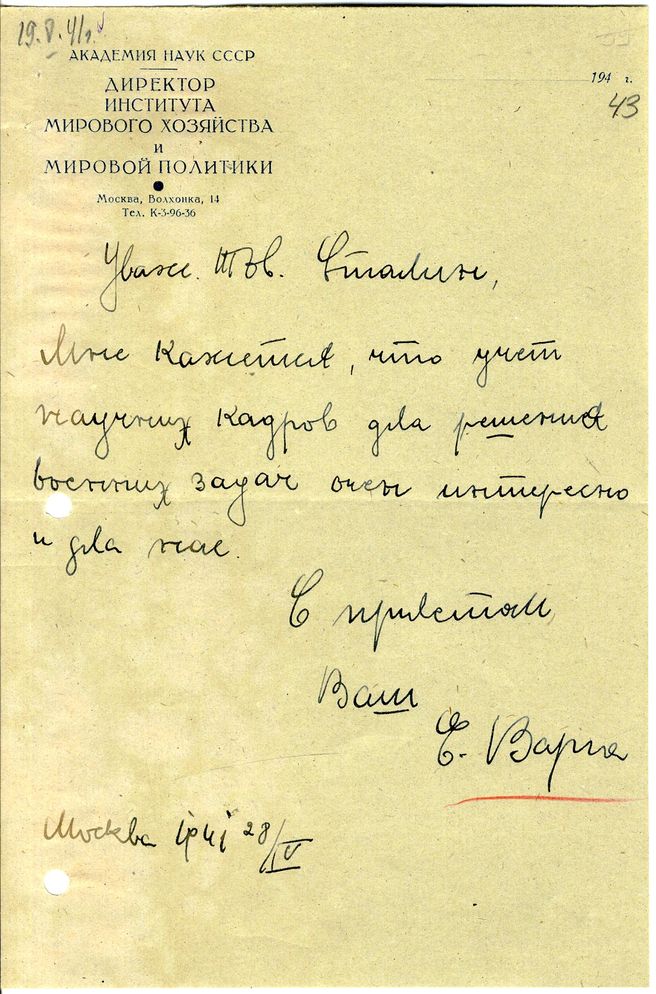 19.V.41г.
АКАДЕМИЯ НАУК СССР
ДИРЕКТОР
ИНСТИТУТА
МИРОВОГО ХОЗЯЙСТВА
И
МИРОВОЙ ПОЛИТИКИ
Москва, Волхонка, 14
Тел. К-3-96-36
194 г.
43
Уваж. Тов. Сталин,
Мне кажется, что учет
научных кадров для решения
военных задач очен интересно
и для нас.
С приветом,
Ваш
Е. Варга
Москва 1941 28/IV